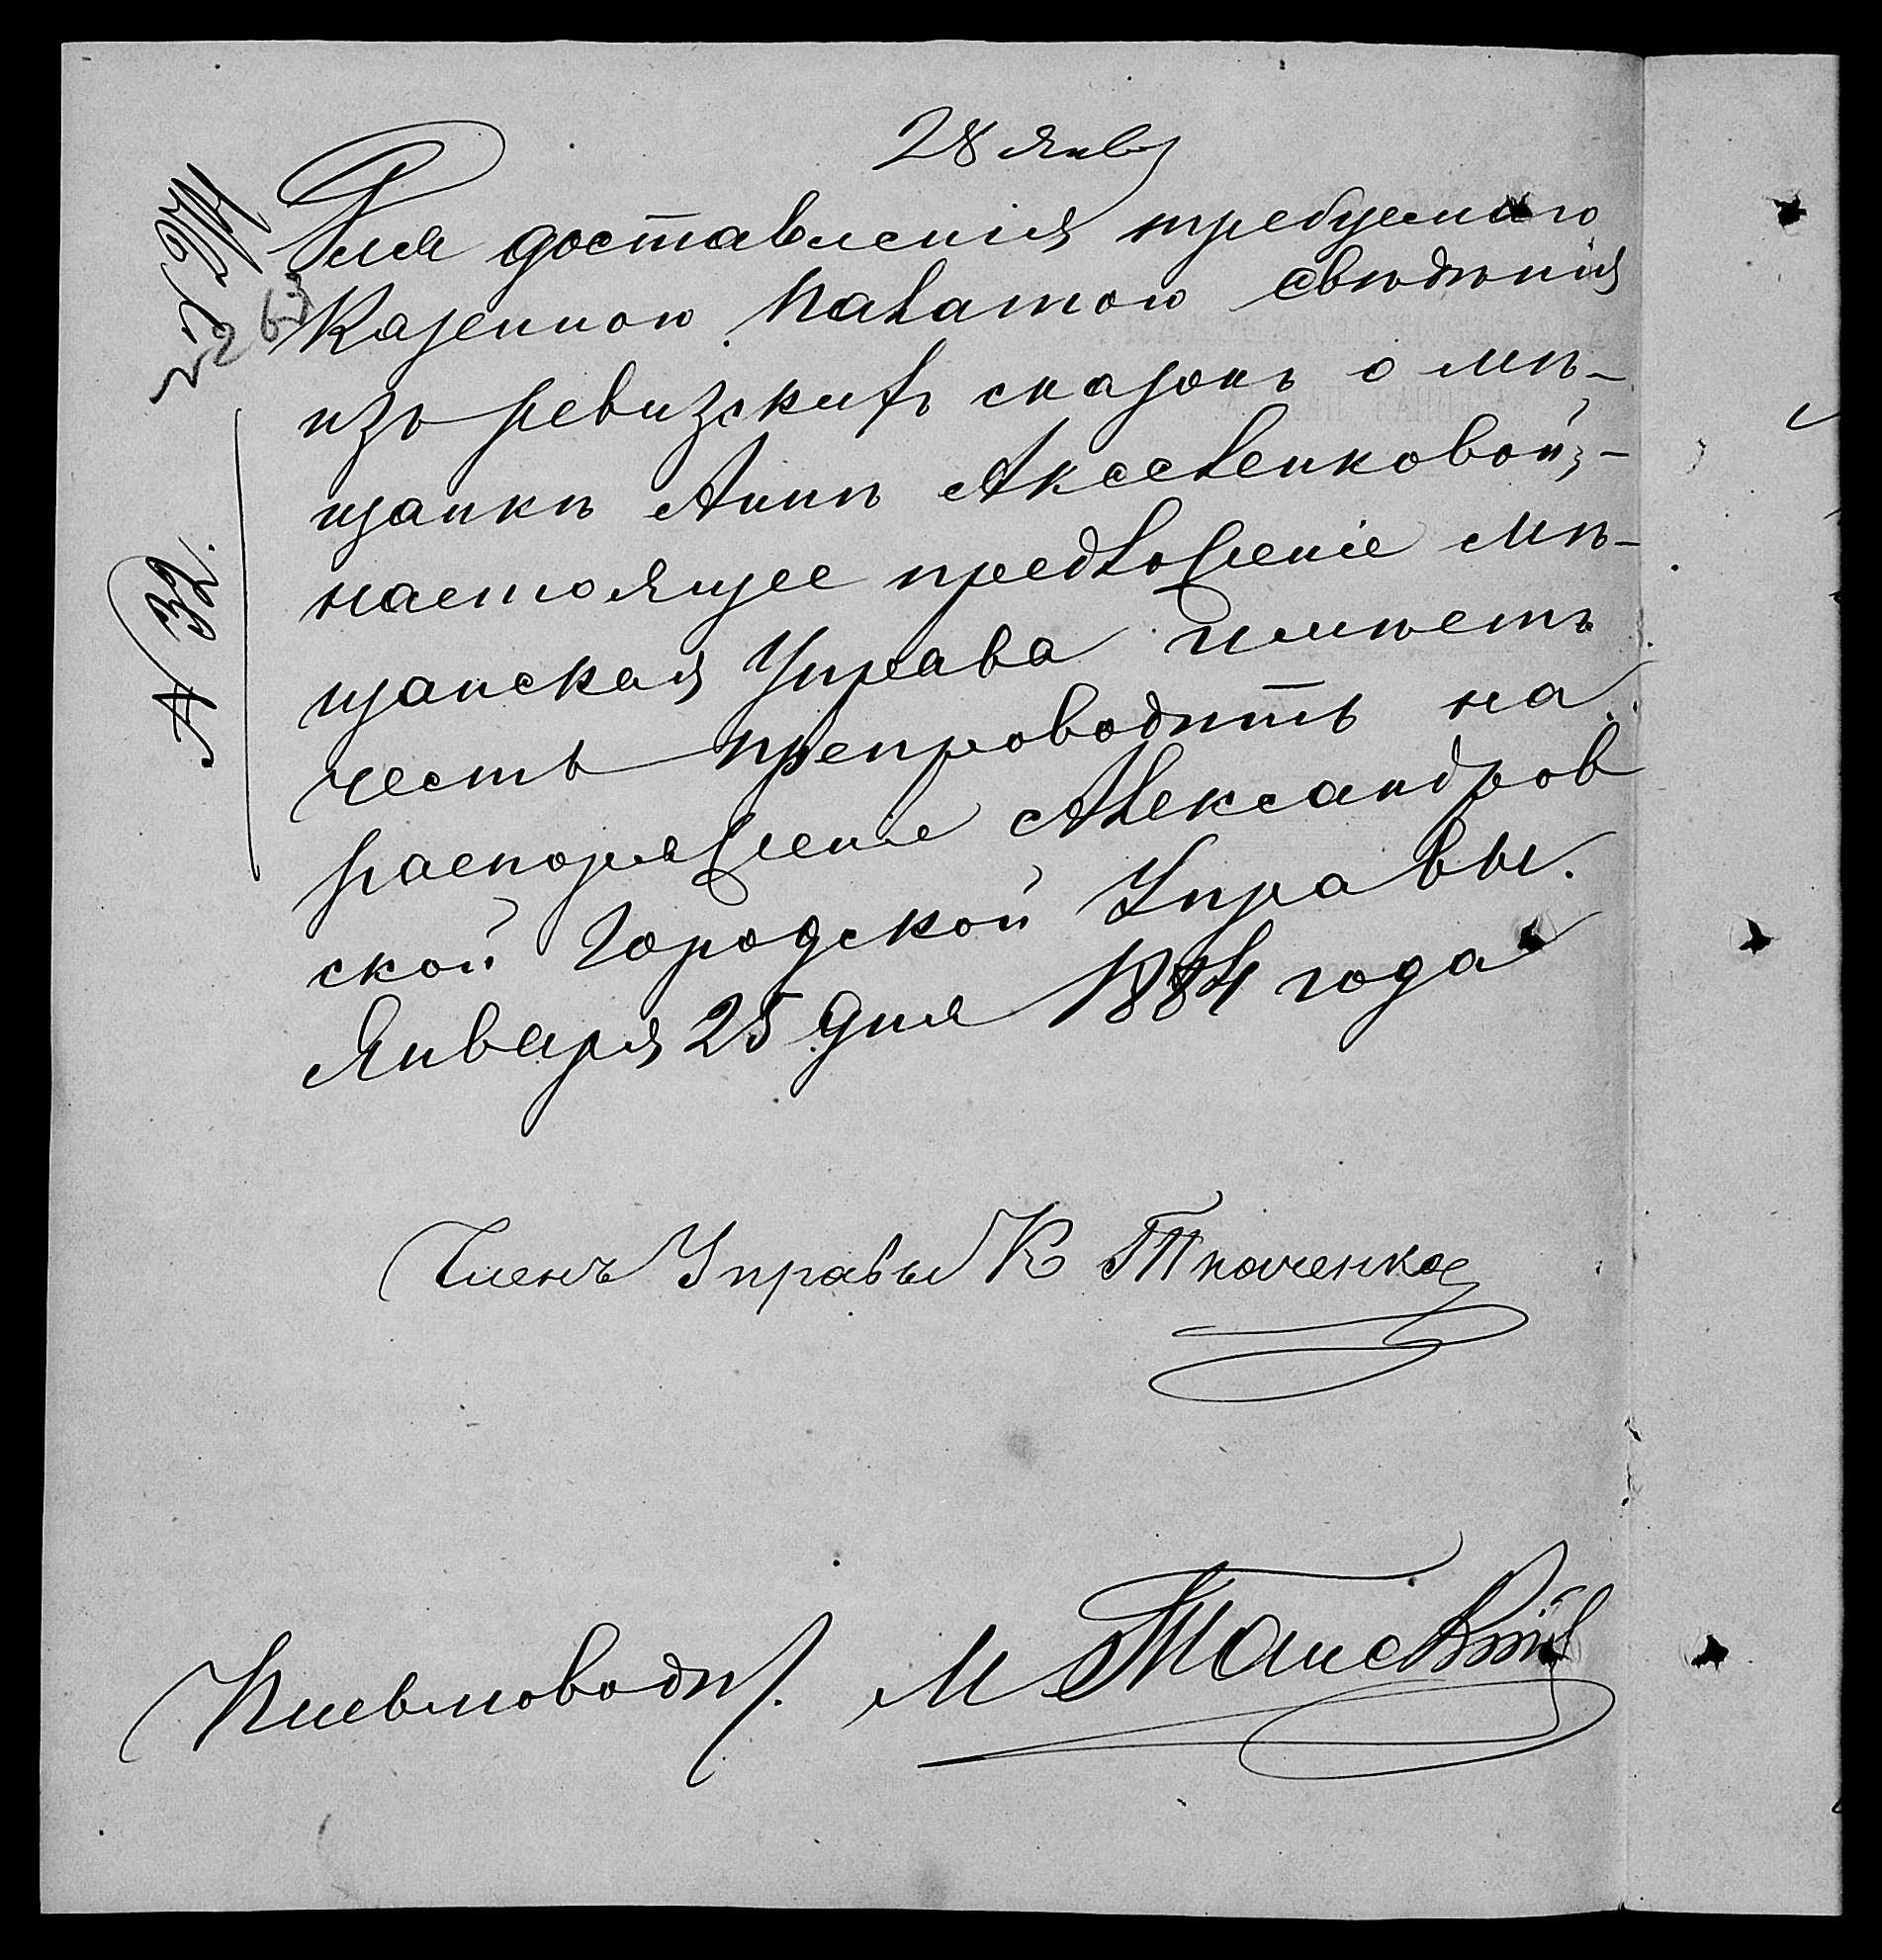 28 Янв
Для доставленія требуемаго
Казенною Палатою свѣдѣнія
изъ ревизскихъ сказокъ о мѣ-
щанкѣ Аннѣ Акселенковой,-
настоящее предложеніе Мѣ-
щанская Управа имѣетъ
честь препроводить на
распоряженіе Александров
ской Городской Управы.
Января 25 дня 1884 года
№ 32.
Членъ Управы К Ткаченко
Письмовод. М